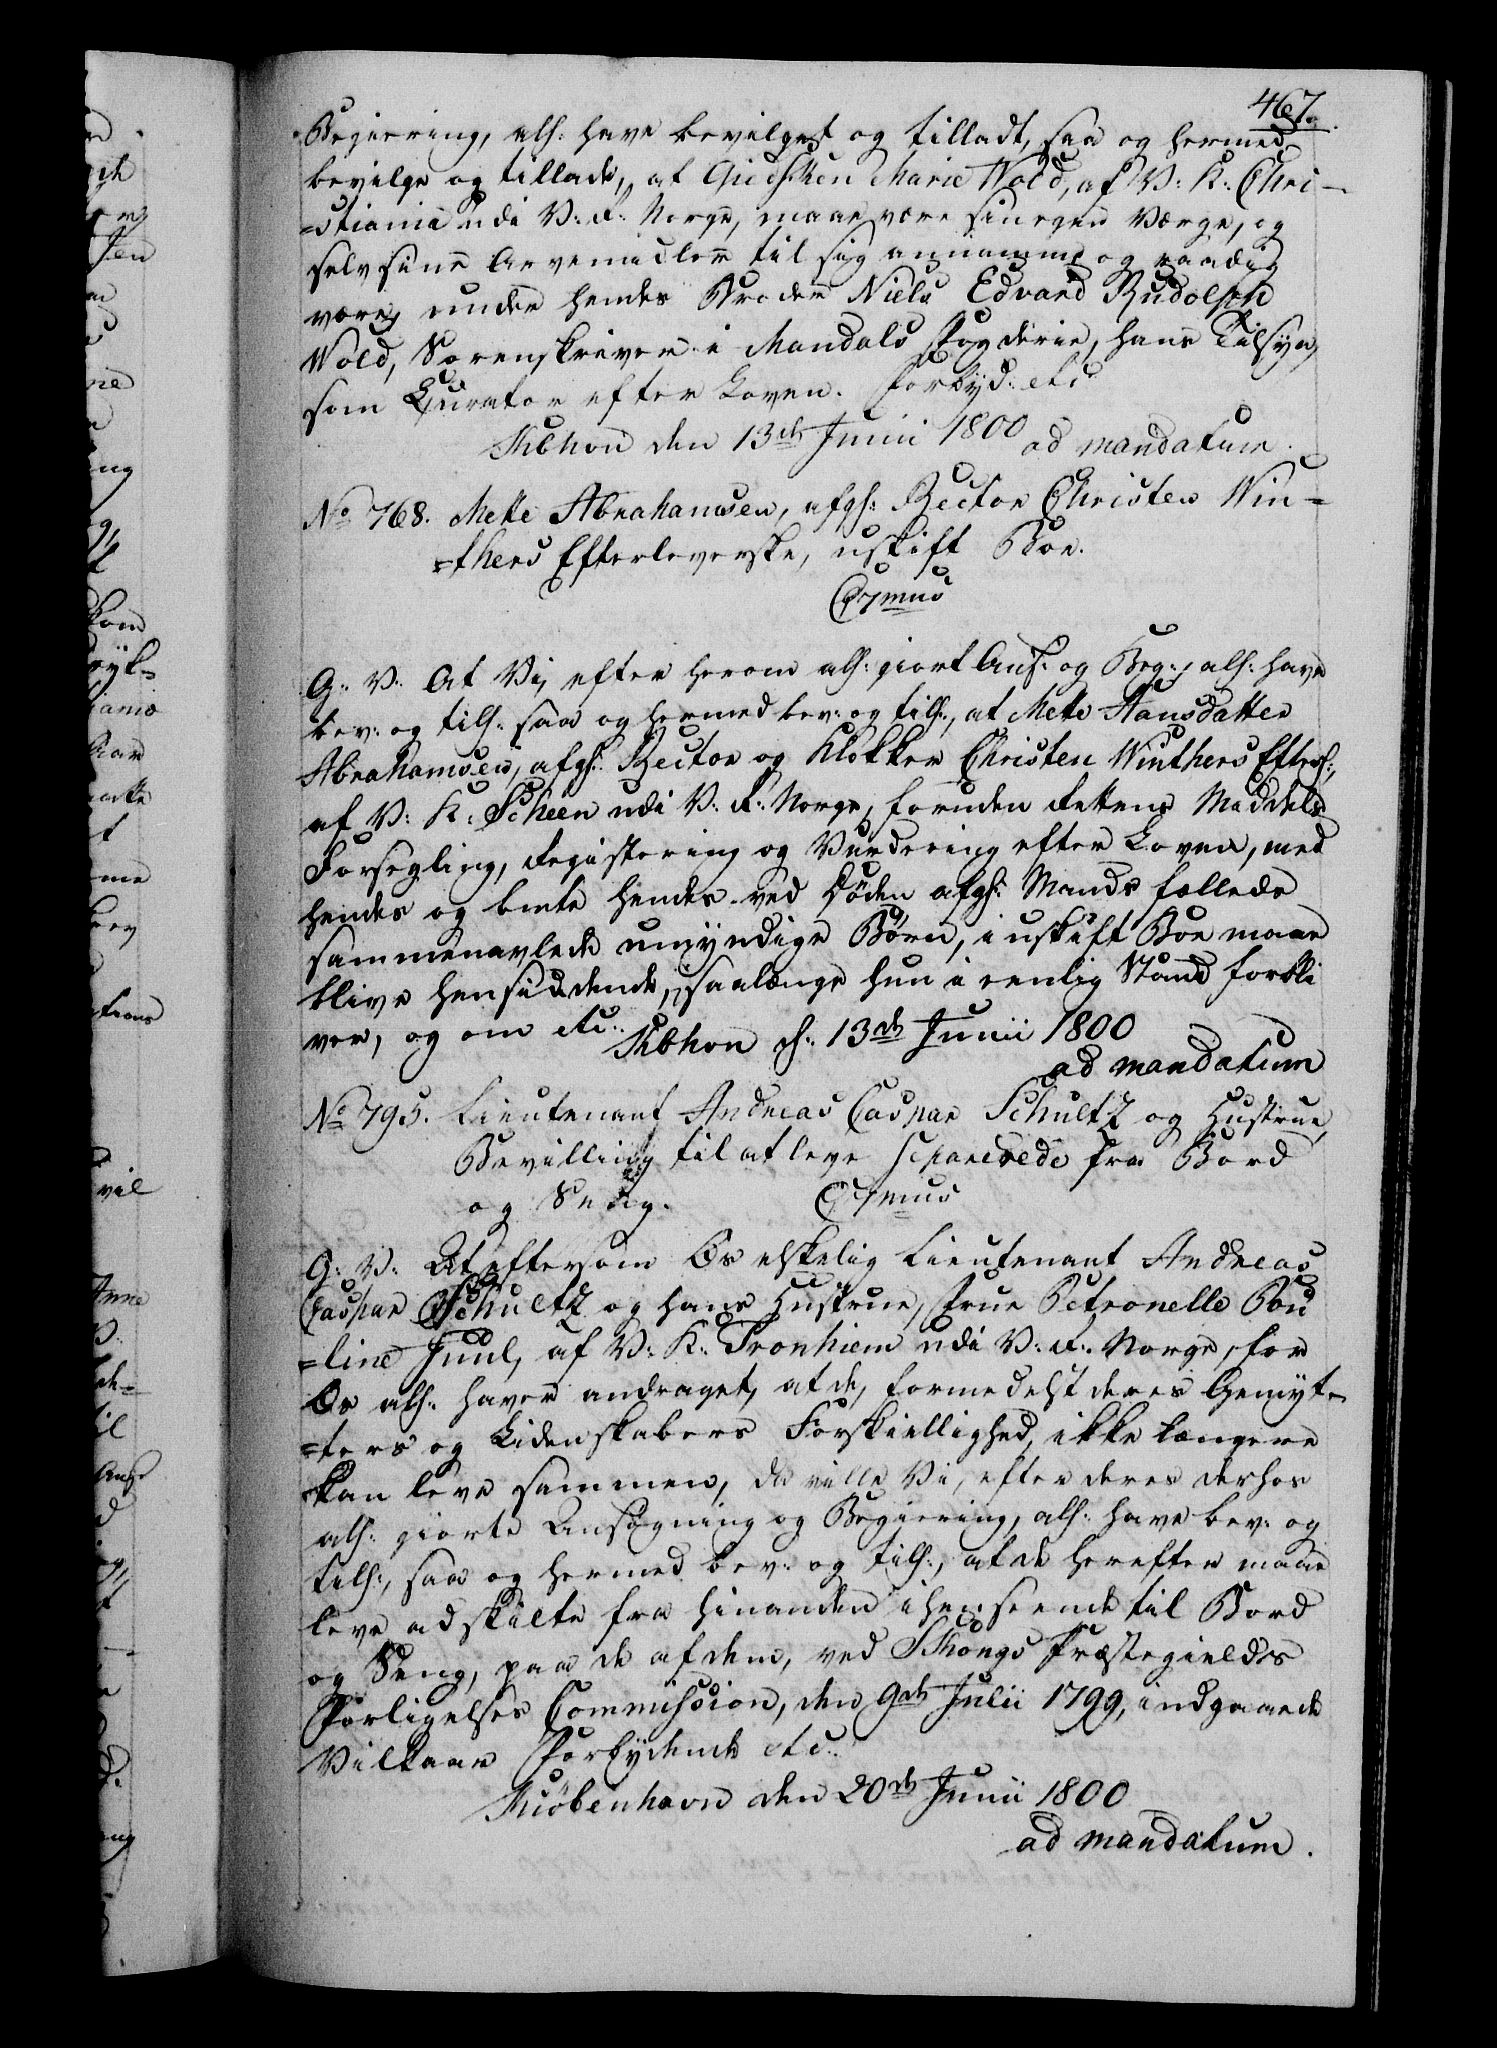 467.
Begiering, alf: have bevilget og tilladt, saa og hermed
bevilge og tillade, at Giedsken Marie Wold, af V: K: Chri-
=stiania udi V: R: Norge, maae være sin egen Værge, og
selv sine Arvemidler til sig annamme og raadig
være, under hendes Broder Niels Edvard Rudolph
Wold, Sorenskriver i Mandals Fogderie, hans Tilsyn,
som Curator efter Loven. Forbyd: etc.
Kbhvn den 13de Junii 1800
ad mandatum.
No 768. Mette Abrahamsen, afg: Rector Christen Win-
=thers Efterleverske, uskift Boe.
C7mus
G: V: At Vi, efter herom alf: giort Ans: og Beg:, alf: have
bev: og till: saa og hermed bev: og till:, at Mette Hansdatter
Abrahamsen, afg: Rector og Klokker Christen Winthers Efterl:,
af V: K: Scheen udi V: R: Norge, foruden Rettens Middels
Forsegling, Registering og Vurdering efter Loven, med
hendes og bemte hendes ved Døden afg: Mands fælleds
sammenavlede umyndige Børn, i uskift Boe maae
blive hensiddende, saalænge hun i eenlig Stand forbli
ver, og om etc:.
Kbhvn d: 13de Junii 1800
ad mandatum
No 795. Lieutenant Andreas Caspar Schultz og Hustrue,
Bevilling til at leve separerede fra Bord
og Seng.
C7mus
G: V: At eftersom Os elskelig Lieutenant Andreas
Caspar Schultz og hans Hustrue, Frue Petronelle Pou
=line Juul, af V: K: Tronhiem udi V: R: Norge, for
Os alf: haver andraget, at de, formedelst deres Gemyt-
=ters og Lidenskabers Forskiellighed, ikke længere
kan leve sammen, da ville Vi, efter deres derhos
alf: giorte Ansøgning og Begiering, alf: have bev: og
till:, saa og hermed bev: og till:, at de herefter maae
leve adskilte fra hinanden i henseende til Bord
og Seng, paa de af dem, ved Skongs Præstegields
Forligelses Commission, den 9de Julii 1799, indgaaede
Vilkaar Forbydende etc:.
Kiøbenhavn den 20de Junii 1800
ad mandatum.